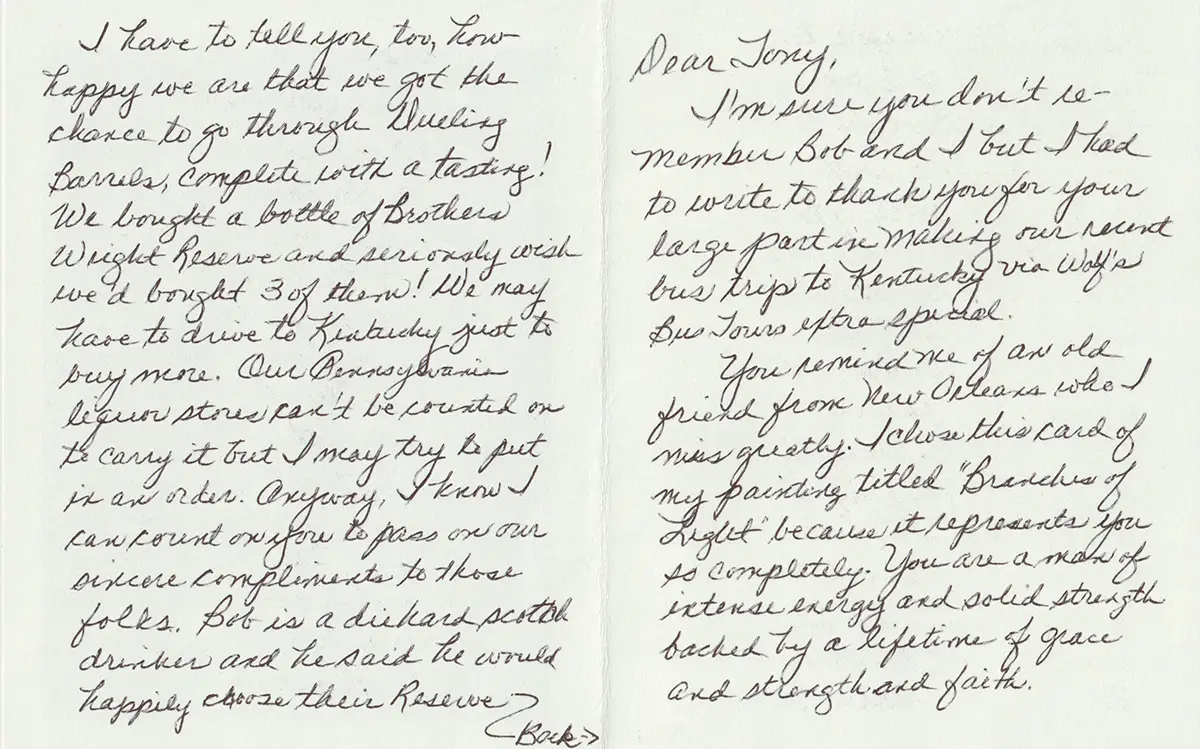 Dear Tony,
I'm sure you don't re-
member Bob and I but I had
to write to thank you for your
large part in making our recent
bus trip to Kentucky via Wolf's
Bus Tours extra special.
You remind me of an old
friend from New Orleans who I
miss greatly. I chose this card of
my painting titled "Branches of
Light" because it represents you
so completely. You are a man of
intense energy and solid strength
backed by a lifetime of grace
and strength and faith.
I have to tell you, too, how
happy we are that we got the
chance to go through Dueling
Barrels, complete with a tasting!
We bought a bottle of Brothers
Wright Reserve and seriously wish
we'd bought 3 of them! We may
have to drive to Kentucky just to
buy more. Our Pennsylvania
liquor stores can't be counted on
to carry it but I may try to put
in an order. Anyway, I know I
can count on you to pass on our
sincere compliments to those
folks. Bob is a diehard scotch
drinker and he said he would
happily choose their Reserve
Back->